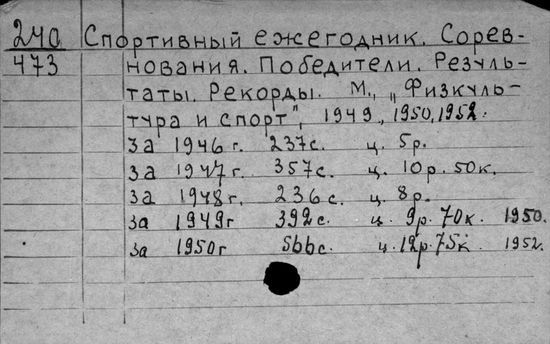 240 Спортивный ежегодник. Сорев-
473 нования. Победители. Резуль-
таты. Рекорды. М., „Физкуль-
тура и спорт", 1949, 1950, 1952.
За 1946г. 237с. ц. 5р.
За 1947г. 357с. ц. 10р.50к.
За 1948г. 236с. ц. 8р.
За 1949г 392с. ц. 9р.70к. 1950.
За 1950г 566с. ц.12р.75к. 1952.